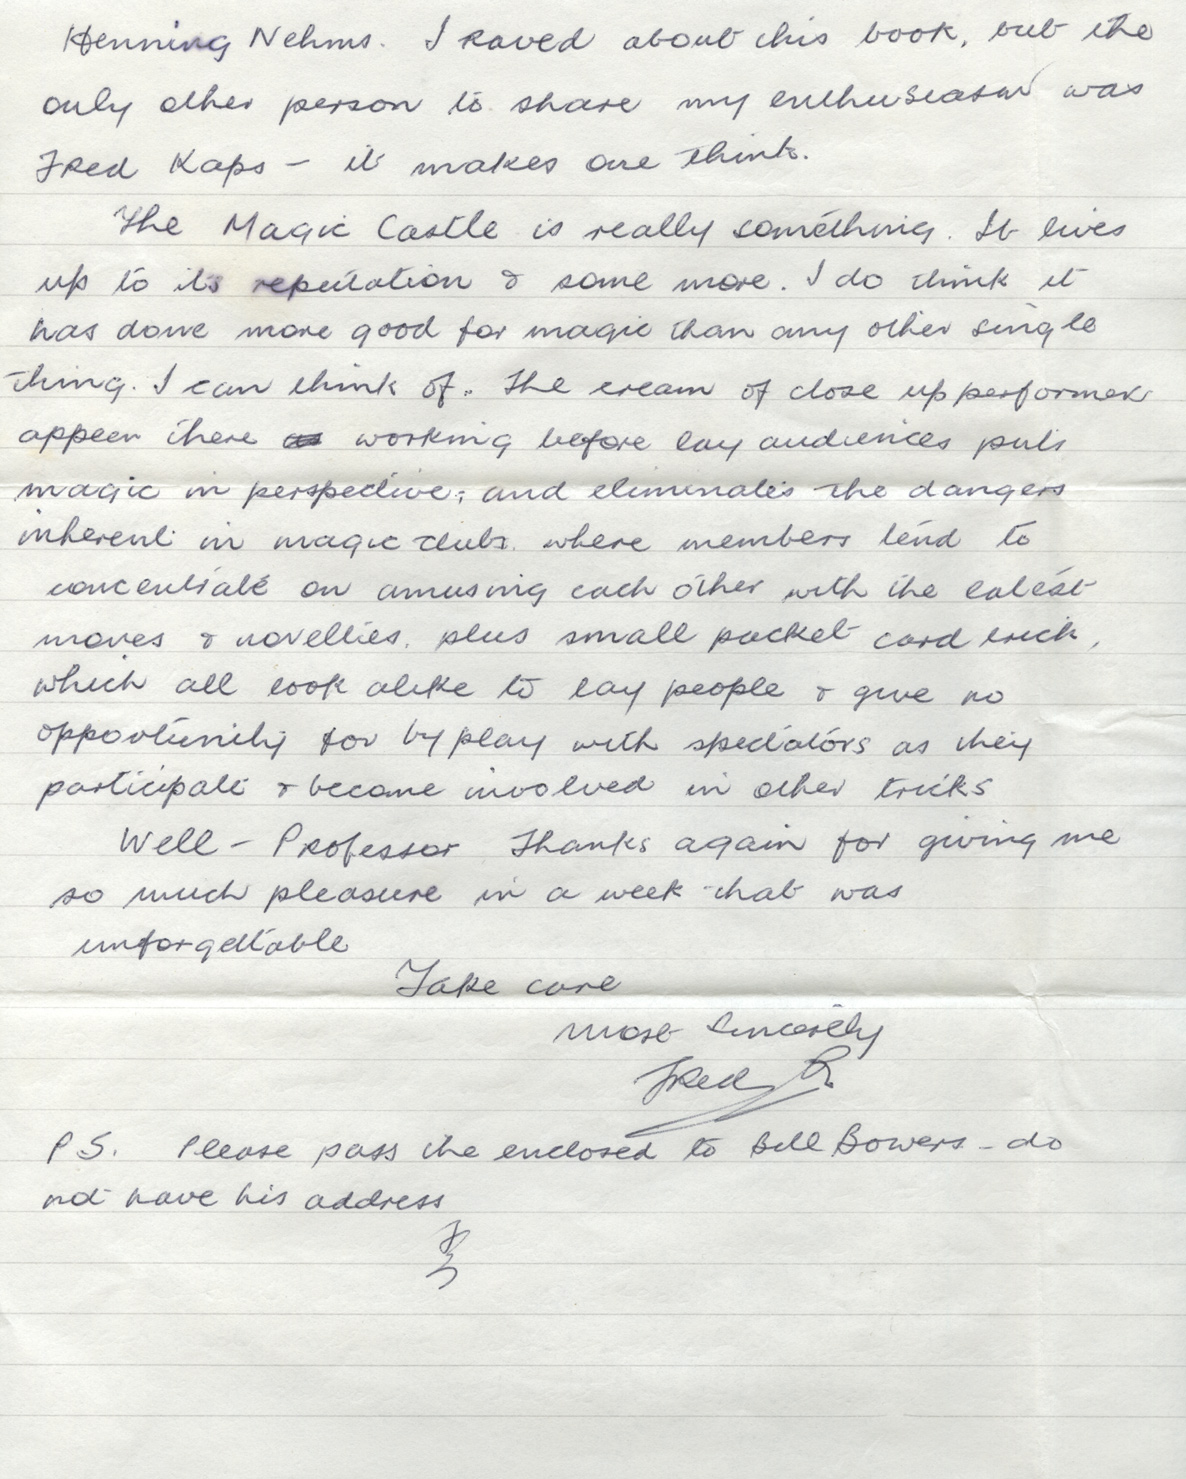 Henning Nelms. I raved about this book, but the
only other person to share my enthusiasm was
Fred Kaps – it makes one think.
The Magic Castle is really something. It lives
up to its reputation & some more. I do think it
has done more good for magic than any other single
thing. I can think of. The cream of close up performers
appear there working before lay audiences puts
magic in perspective; and eliminates the dangers
inherent in magic clubs. where members tend to
concentrate on amusing each other with the latest
moves & novelties. plus small packet card trick,
which all look alike to lay people & give no
opportunity for byplay with spectators as they
participate & become involved in other tricks
Well – Professor Thanks again for giving me
so much pleasure in a week that was
unforgettable
Take care
most Sincerely
Fred R.
P S. Please pass the enclosed to Bill Bowers – do
not have his address